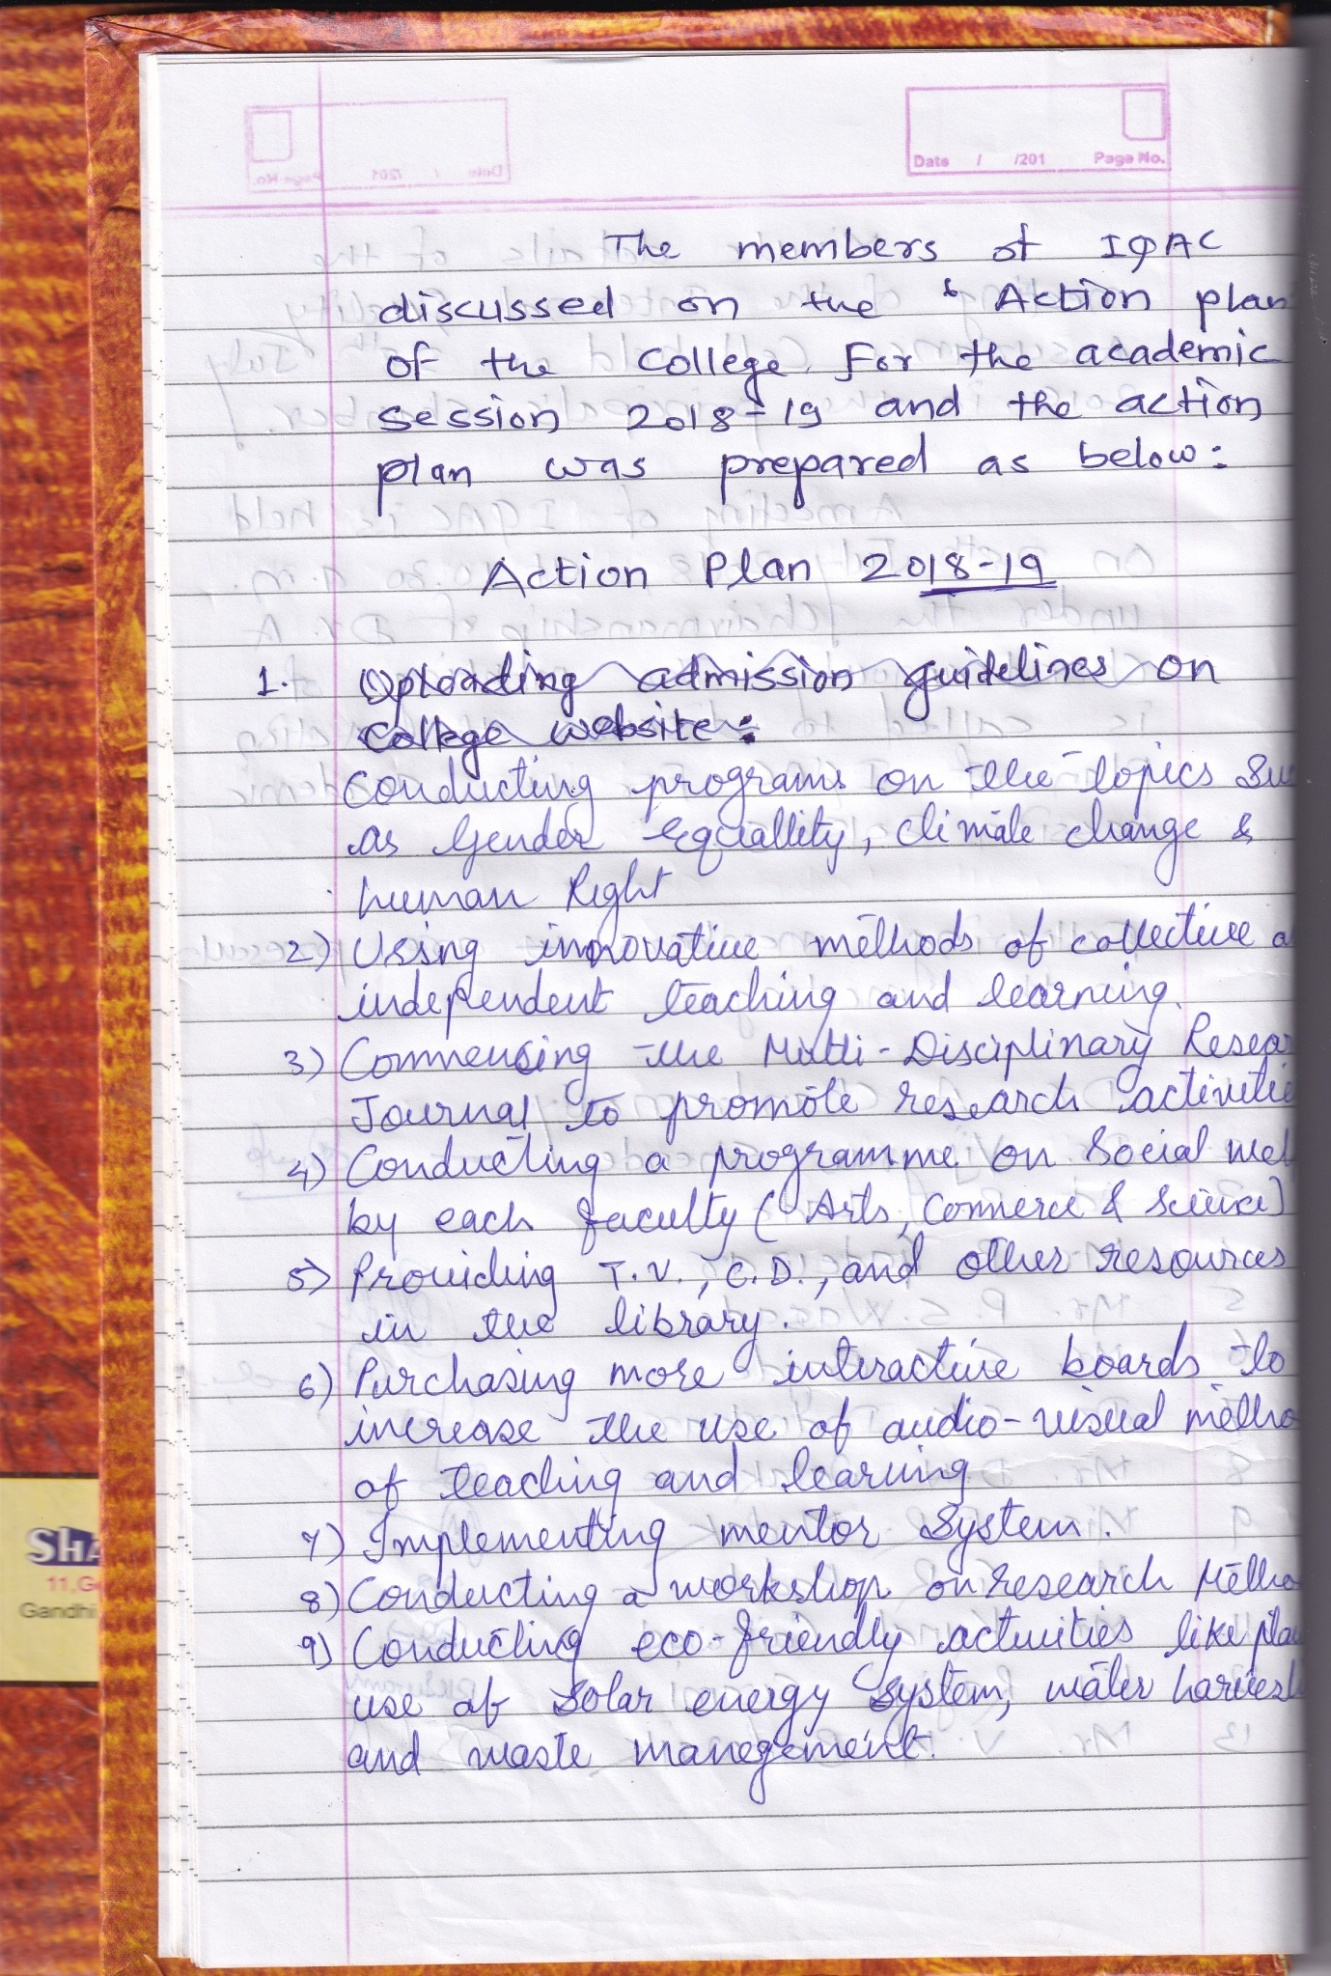 Date / /201 Page No.
The members of IQAC
discussed on the ' Action plan
of the College For the academic
session 2018-19 and the action
plan was prepared as below:
Action Plan 2018-19
1. Uploading admission guidelines on
College website:
Conducting programs on the topics Su
as Gender Equallity, climate change &
human Right
2) Using innovative methods of collective a
independent teaching and learning.
3) Commencing the Multi-Disciplinary Resear
Journal to promote research activitie
4) Conducting a programme on Social wel
by each faculty (Arts, Commerce & Science)
5) Providing T.V., C.D., and other resources
in the library.
6) Purchasing more interactive boards to
increase the use of audio-visual metho
of teaching and learning
7) Implementing mentor System.
8) Conducting a workshop on research Metho
9) Conducting eco-friendly activities like pla
use of Solar energy System, water harvest
and waste manegement.
SHA
11,G
Gandhi